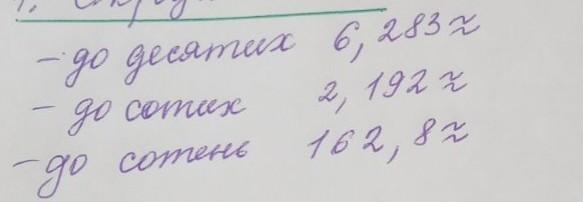 - до десятих 6,283 ≈
- до сотих 2,192 ≈
- до сотень 162,8 ≈